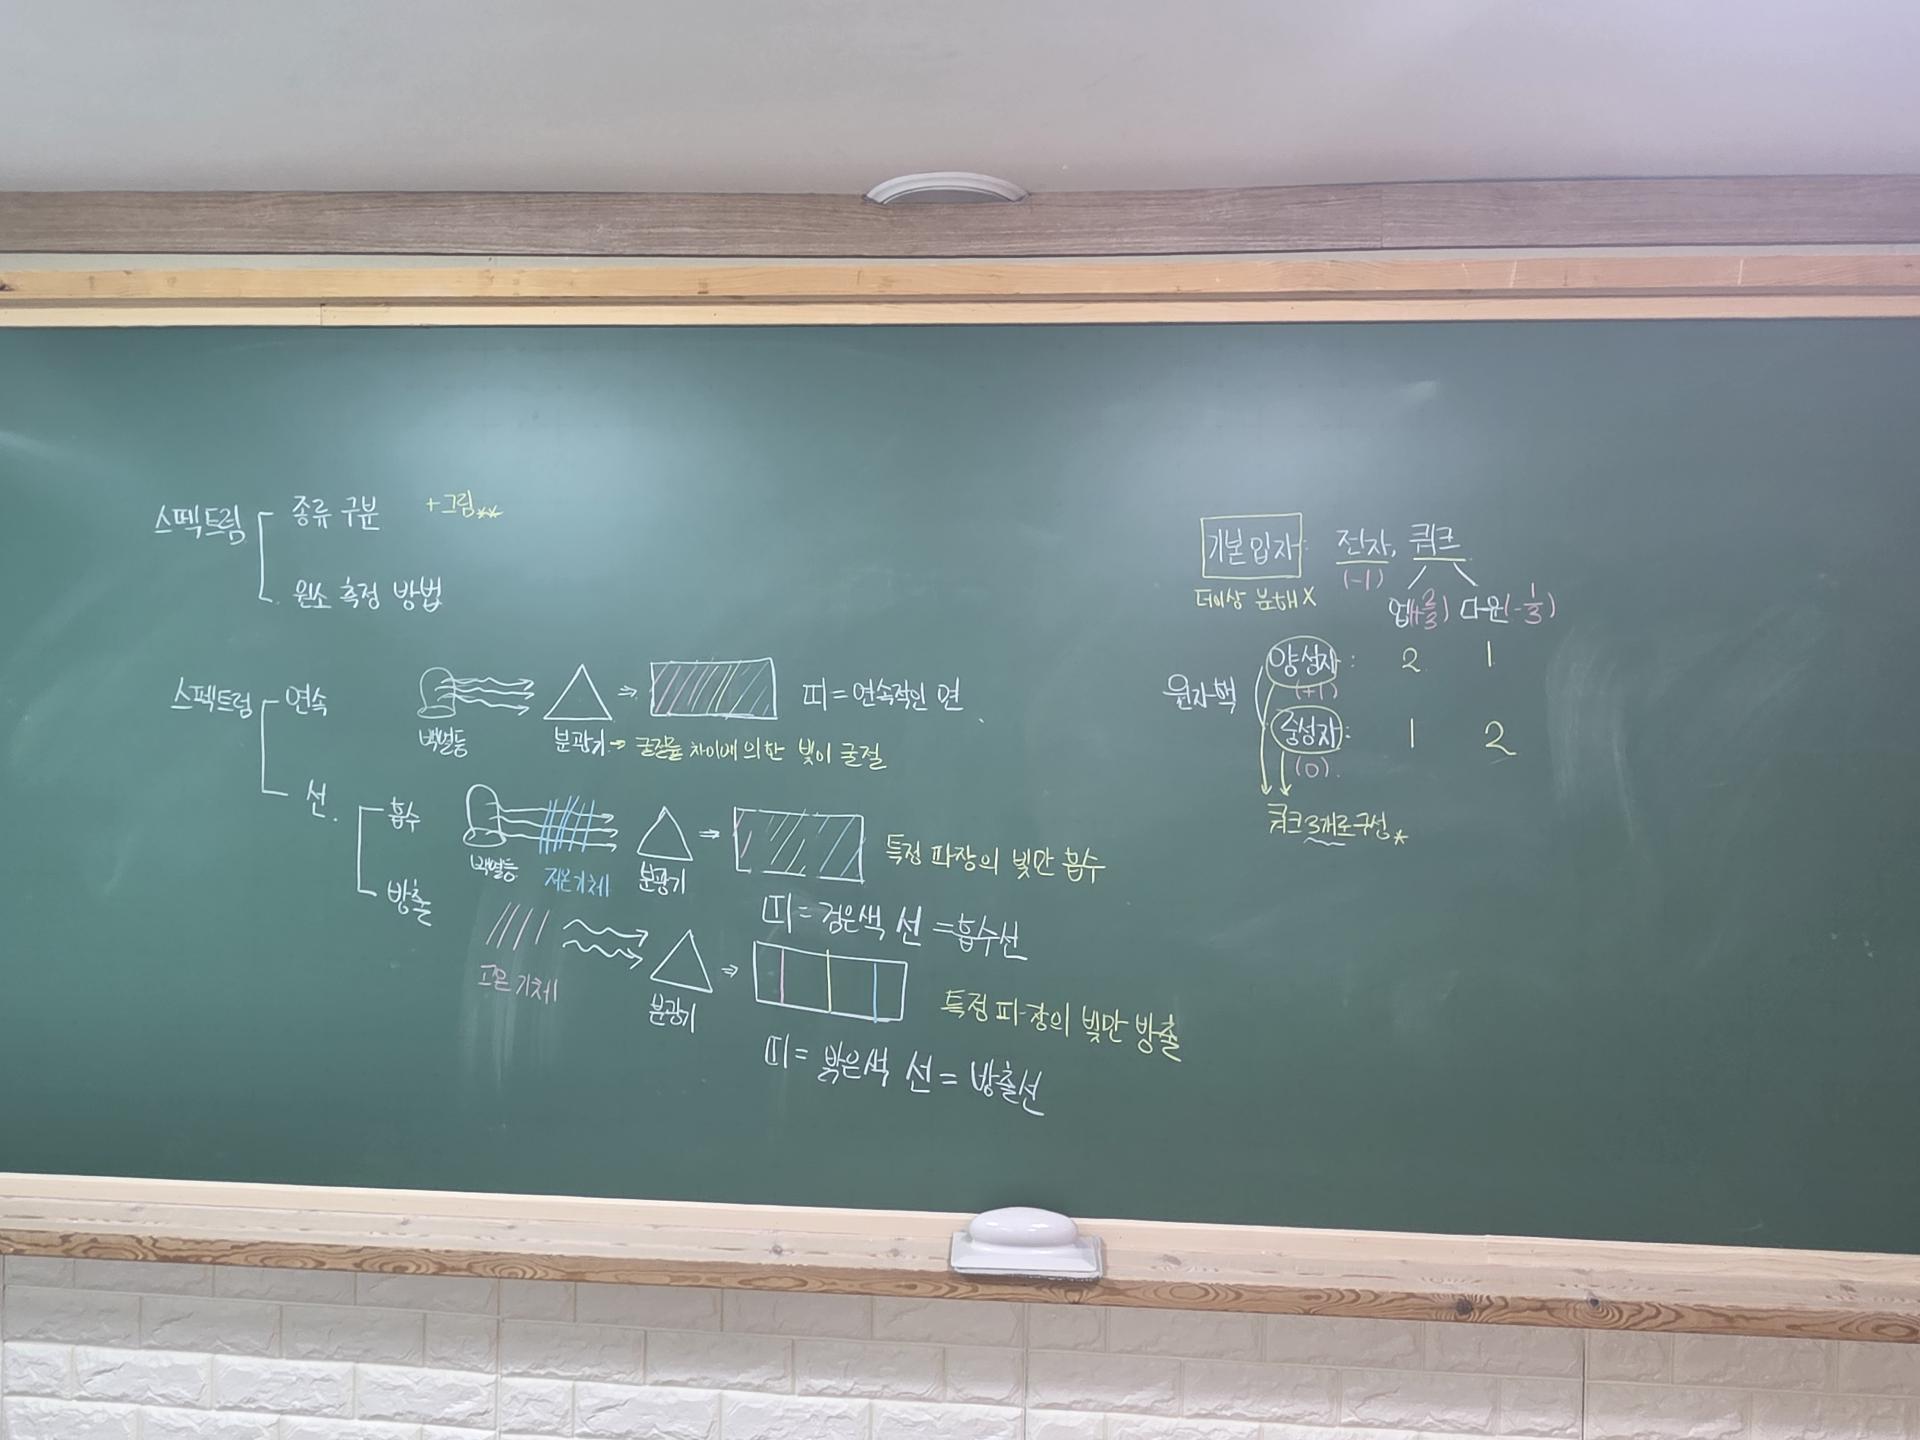 스펙트럼 종류 구분 +그림**
원소 측정 방법
스펙트럼 연속
백열등
분광기 → 굴절률 차이에 의한 빛이 굴절
띠 = 연속적인 면
선.
흡수
백열등 저온기체 분광기
특정 파장의 빛만 흡수
띠 = 검은색 선 = 흡수선
방출
고온 기체
분광기
특정 파장의 빛만 방출
띠 = 밝은색 선 = 방출선
기본입자: 전자, 쿼크
(-1)
더이상 분해 X
업(+2/3) 다운(-1/3)
원자핵
양성자: 2 1
(+1)
중성자: 1 2
(0)
쿼크 3개로 구성*